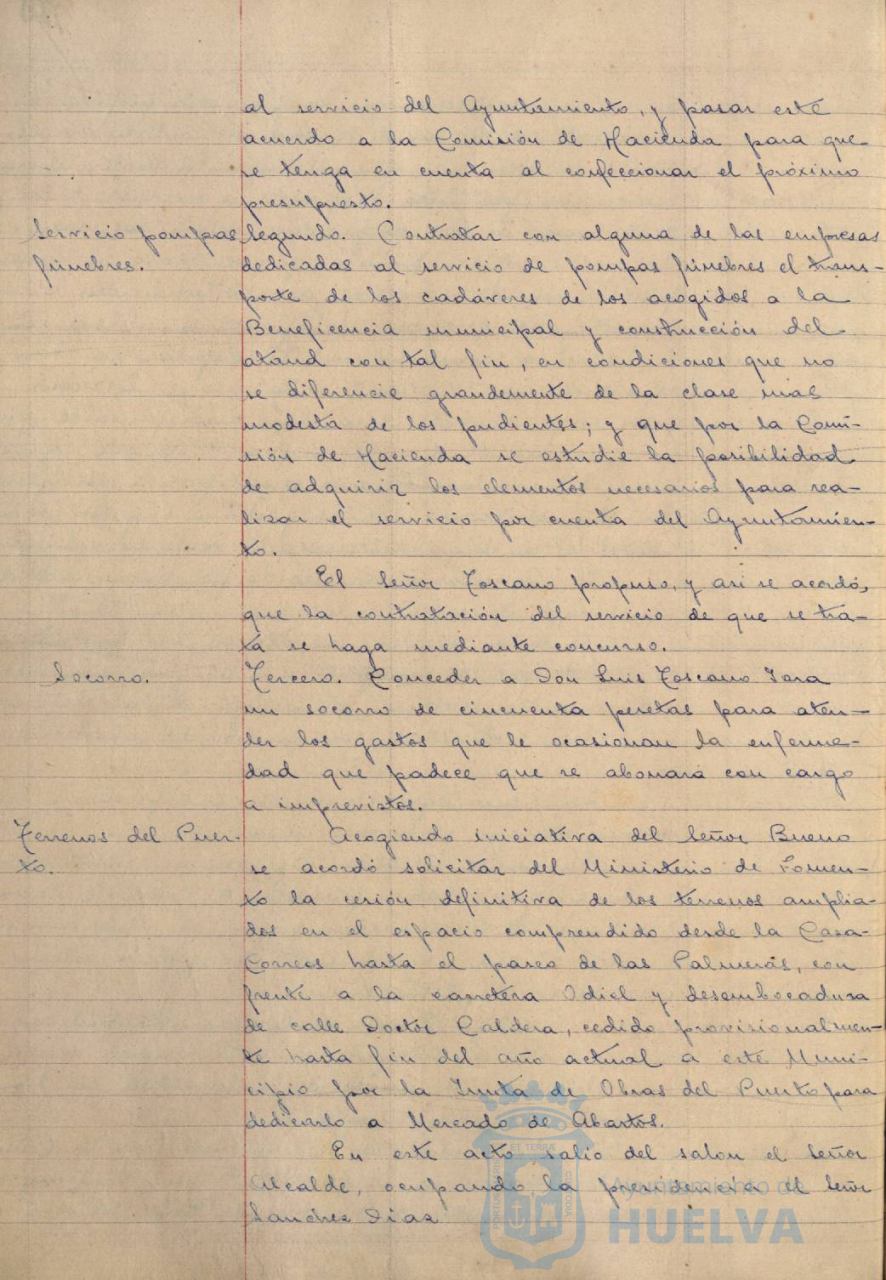 al servicio del Ayuntamiento, y pasar este
acuerdo a la Comisión de Hacienda para que
se tenga en cuenta al confeccionar el próximo
presupuesto.
Servicio pompas
fúnebres.
Segundo. Contratar con alguna de las empresas
dedicadas al servicio de pompas fúnebres el trans-
porte de los cadáveres de los acogidos a la
Beneficencia municipal y construcción del
ataud con tal fin, en condiciones que no
se diferencie grandemente de la clase mas
modesta de los pudientes; y que por la Comi-
sión de Hacienda se estudie la posibilidad
de adquirir los elementos necesarios para rea-
lizar el servicio por cuenta del Ayuntamien-
to.
El Señor Toscano propuso, y asi se acordó,
que la contratación del servicio de que se tra-
ta se haga mediante concurso.
Socorro.
Tercero. Conceder a Don Luis Toscano Jara
un socorro de cincuenta pesetas para aten-
der los gastos que le ocasionan la enferme-
dad que padece que se abonara con cargo
a imprevistos.
Terrenos del Puer-
to.
Acogiendo iniciativa del Señor Bueno
se acordó solicitar del Ministerio de Fomen-
to la cesión definitiva de los terrenos amplia-
dos en el espacio comprendido desde la Casa-
Correos hasta el paseo de las Palmeras, con
frente a la carretera Odiel y desembocadura
de calle Doctor Caldera, cedido provisionalmen-
te hasta fin del año actual a este Muni-
cipio por la Junta de Obras del Puerto para
dedicarlo a Mercado de Abastos.
En este acto salio del salon el Señor
Alcalde, ocupando la presidencia el Señor
Sanchez Diaz
Ayuntamiento de
HUELVA